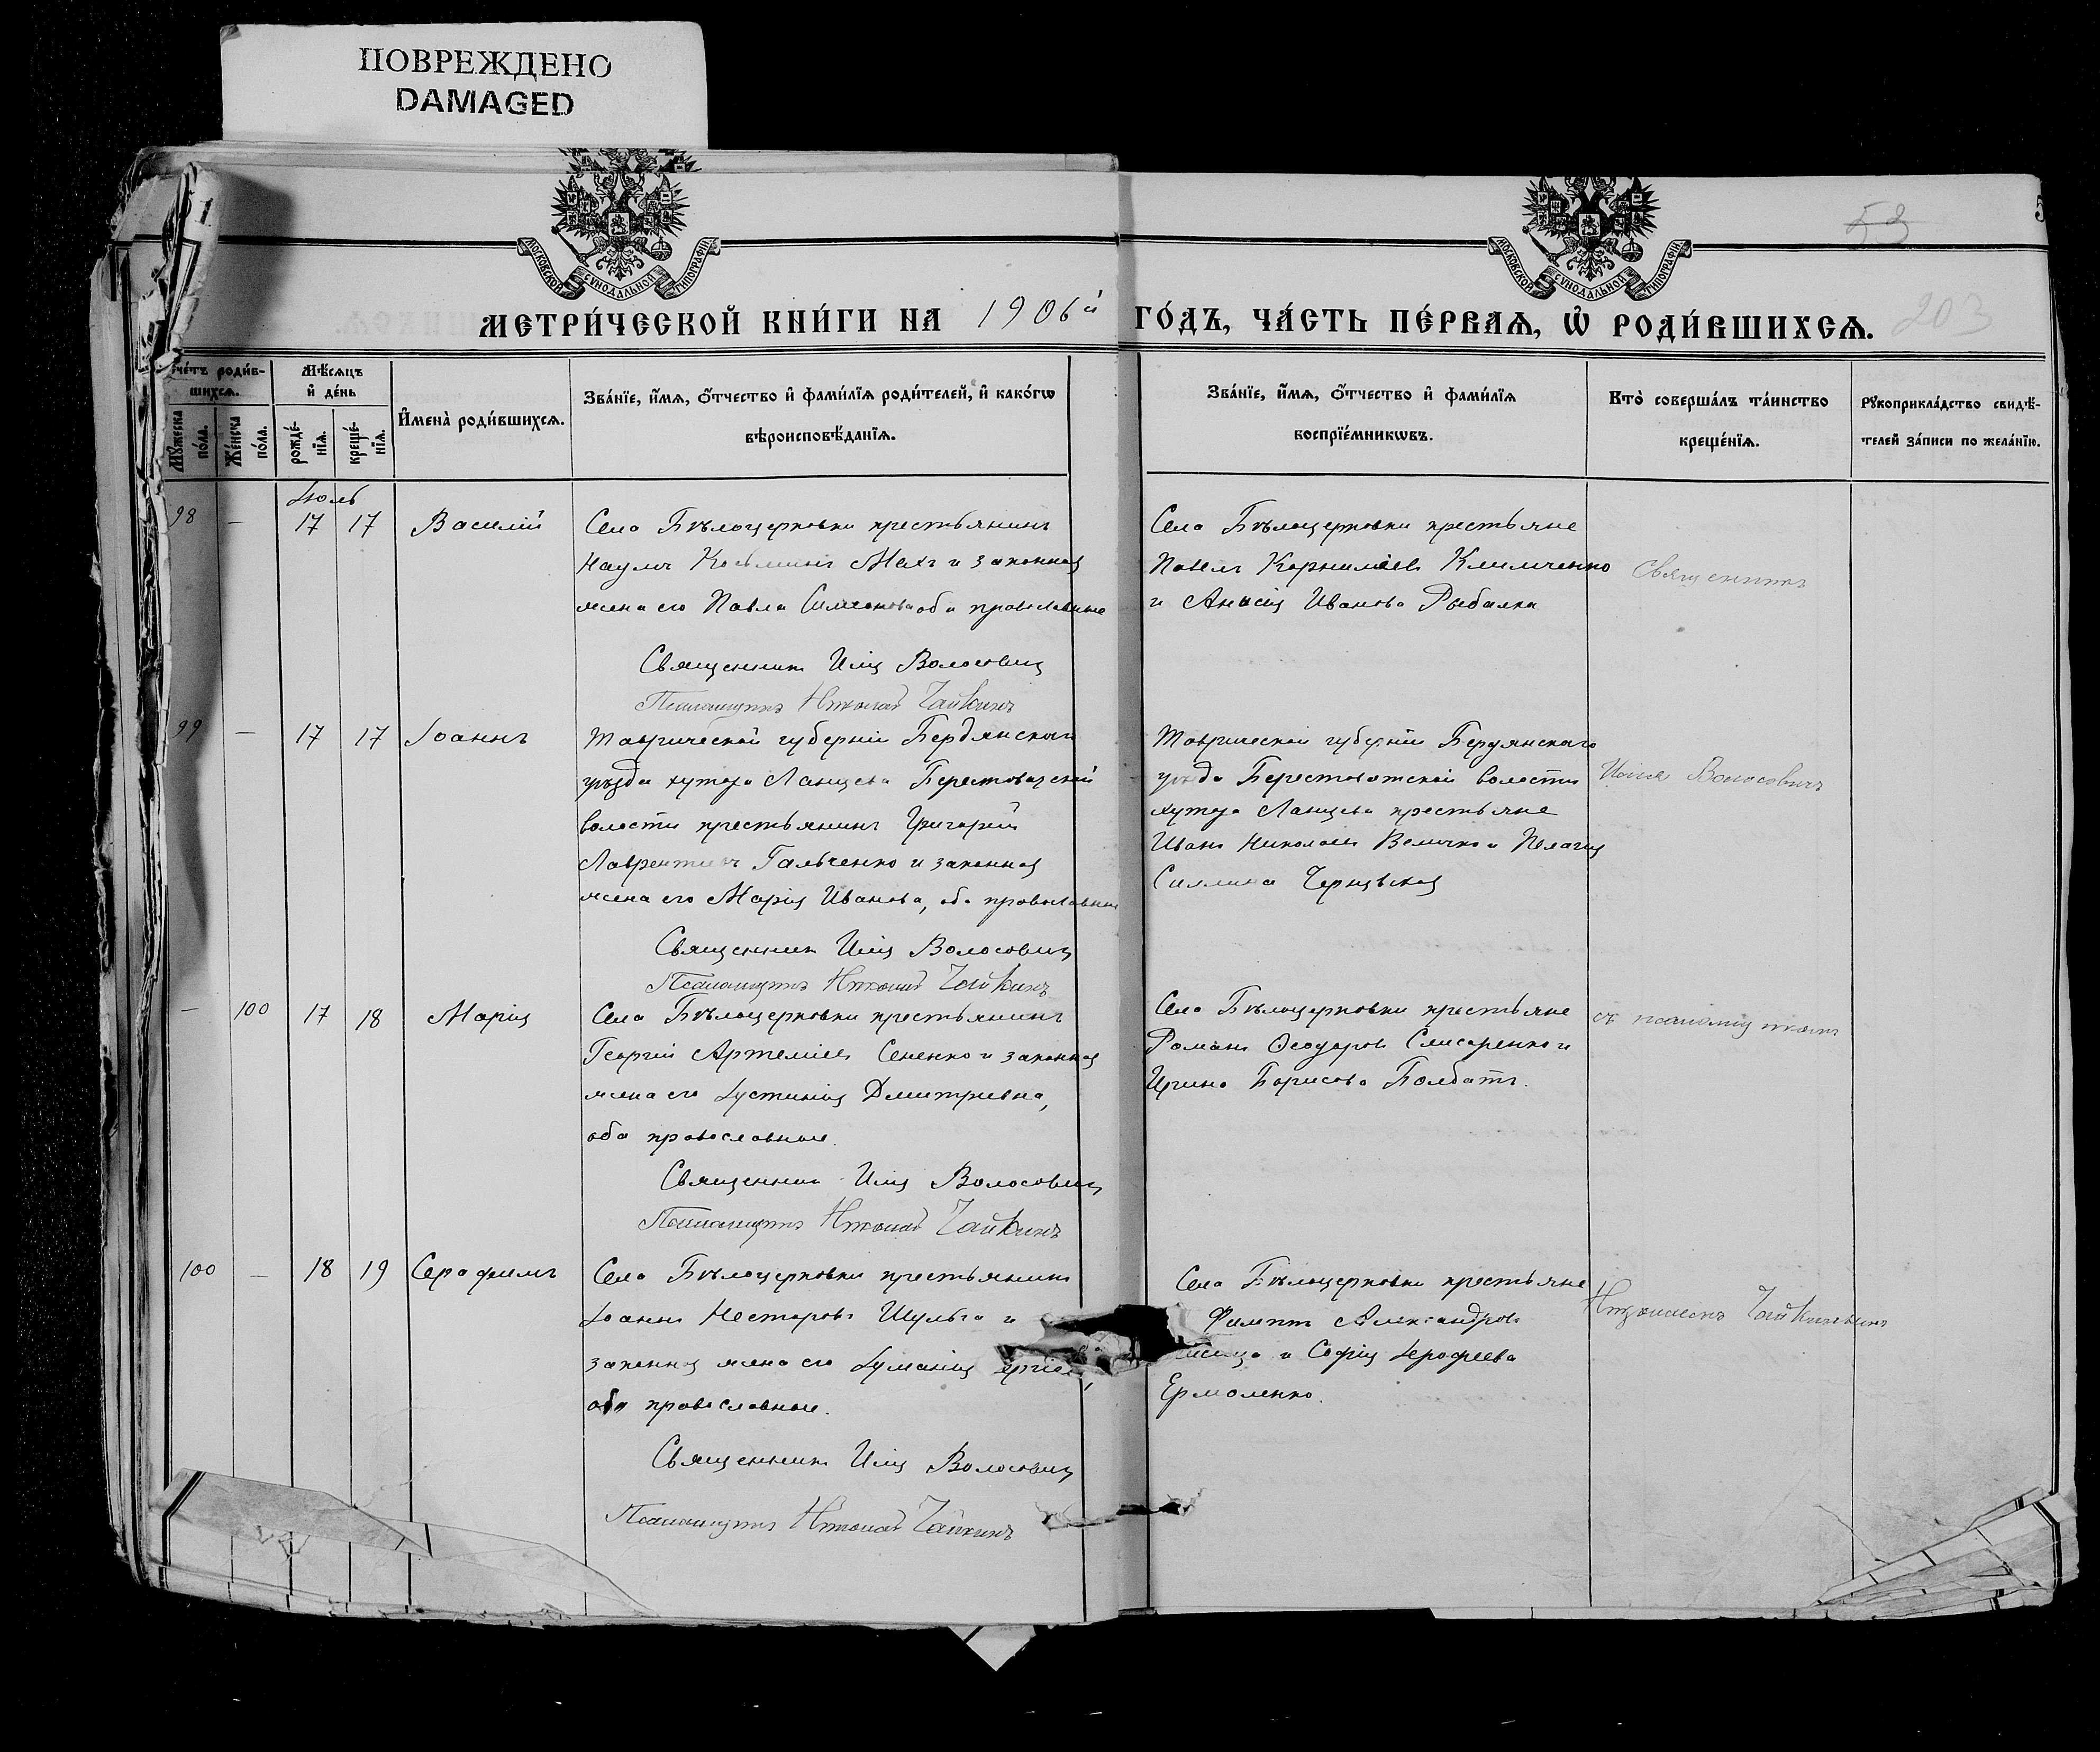 ПОВРЕЖДЕНО
DAMAGED
МОСКОВСКОЙ СѴНОДАЛЬНОЙ ТИПОГРАФІИ
МОСКОВСКОЙ СѴНОДАЛЬНОЙ ТИПОГРАФІИ
53
МЕТРИ́ЧЕСКОЙ КНИ́ГИ НА 1906й ГО́ДЪ, ЧА́СТЬ ПЕ́РВАѦ, Ѡ҆ РОДИ́ВШИХСѦ. 203
счетъ роди́в-
шихсѧ.
Мꙋжеска по́ла.
Же́нска по́ла.
Мѣ́сѧцъ
и҆ де́нь
рожде́-
нїѧ.
креще́-
нїѧ.
И҆мена̀ роди́вшихсѧ.
Зва́нїе, и҆́мѧ, ѻ҆́тчество и҆ фами́лїѧ роди́телей, и҆ како́гѡ
вѣроисповѣ́данїѧ.
Зва́нїе, и҆́мѧ, ѻ҆́тчество и҆ фами́лїѧ
воспрїе́мникѡвъ.
Кто̀ соверша́лъ та́инство
креще́нїѧ.
Рꙋкоприкла́дство свидѣ́-
телей за́писи по жела́нїю.
Іюль
98 — 17 17 Василій
Села Бѣлоцерковки крестьянинъ
Наумъ Косьминъ Махъ и законная
жена его Павла Симеонова оба православные
Священникъ Илія Волосовичъ
Псаломщикъ Николай Чайкинъ
Села Бѣлоцерковки крестьяне
Павелъ Корниліевъ Климченко
и Анисія Иванова Рыбалка
Священникъ
99 — 17 17 Іоаннъ
Таврической губерніи Бердянскаго
уѣзда хутора Ланцева Берестоватской
волости крестьянинъ Григорій
Лаврентіевъ Гальченко и законная
жена его Марія Иванова, оба православные
Священникъ Илія Волосовичъ
Псаломщикъ Николай Чайкинъ
Таврической губерніи Бердянскаго
уѣзда Берестоватской волости
хутора Ланцева крестьяне
Иванъ Николаевъ Величко и Пелагія
Илія Волосовичъ
— 100 17 18 Марія
Села Бѣлоцерковки крестьянинъ
Георгій Артеміевъ Сененко и законная
жена его Іустинія Дмитріевна,
оба православные.
Священникъ Илія Волосовичъ
Псаломщикъ Николай Чайкинъ
Села Бѣлоцерковки крестьяне
Романъ Ѳеодоровъ Слисаренко и
Ирина Борисова Полбатъ.
съ псаломщикомъ
100 — 18 19 Серафимъ
Села Бѣлоцерковки крестьянинъ
Іоаннъ Несторовъ Шульга и
законная жена его
оба православные.
Священникъ Илія Волосовичъ
Псаломщикъ Николай Чайкинъ
Села Бѣлоцерковки крестьяне
Филиппъ Александровъ
и Софія Іерофеева
Ермоленко.
Николаемъ Чайкинымъ